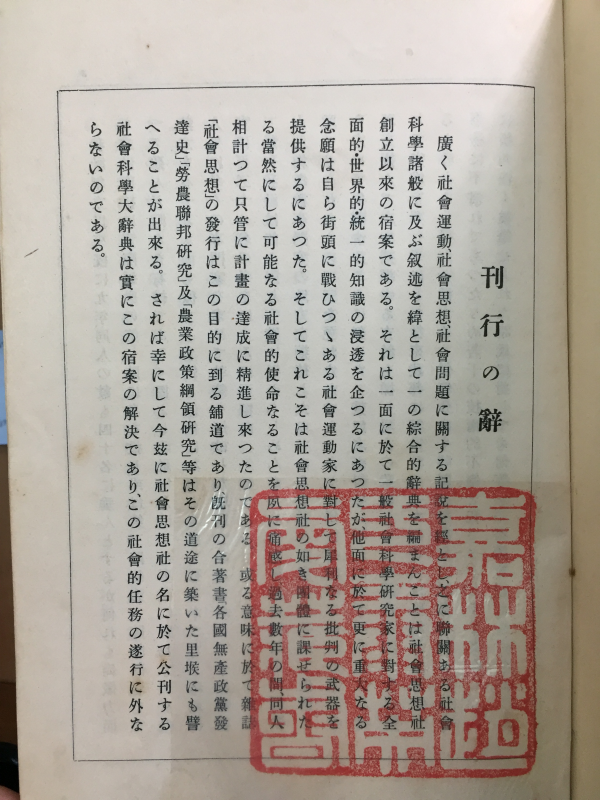 刊行の辭
廣く社會運動、社會思想、社會問題に關する記説を經とし、之に聯關ある社會
科學諸般に及ぶ叙述を緯として一の綜合的辭典を編まんごとは社會思想社
創立以來の宿案である。それは一面に於て一般社會科學研究家に對する全
面的・世界的・統一的知識の浸透を企つるにあつたが、他面に於て更に重大なる
念願は自ら街頭に戰ひつゝある社會運動家に對して犀利なる批判の武器を
提供するにあつた。そしてこれこそは社會思想社の如き團體に課せられた
る當然にして可能なる社會的使命なることを夙に痛感し過去數年の間、同人
相計つて只管に計畫の達成に精進し來つたのである。或る意味に於て雜誌
「社會思想」の發行はこの目的に到る舗道であり、既刊の合著書各國無產政黨發
達史」「勞農聯邦研究」及「農業政策綱領研究」等はその道途に築いた里堠にも譬
へることが出來る。されば幸にして今茲に社會思想社の名に於て公刊する
社會科學大辭典は實にこの宿案の解決であり、この社會的任務の遂行に外な
らないのである。